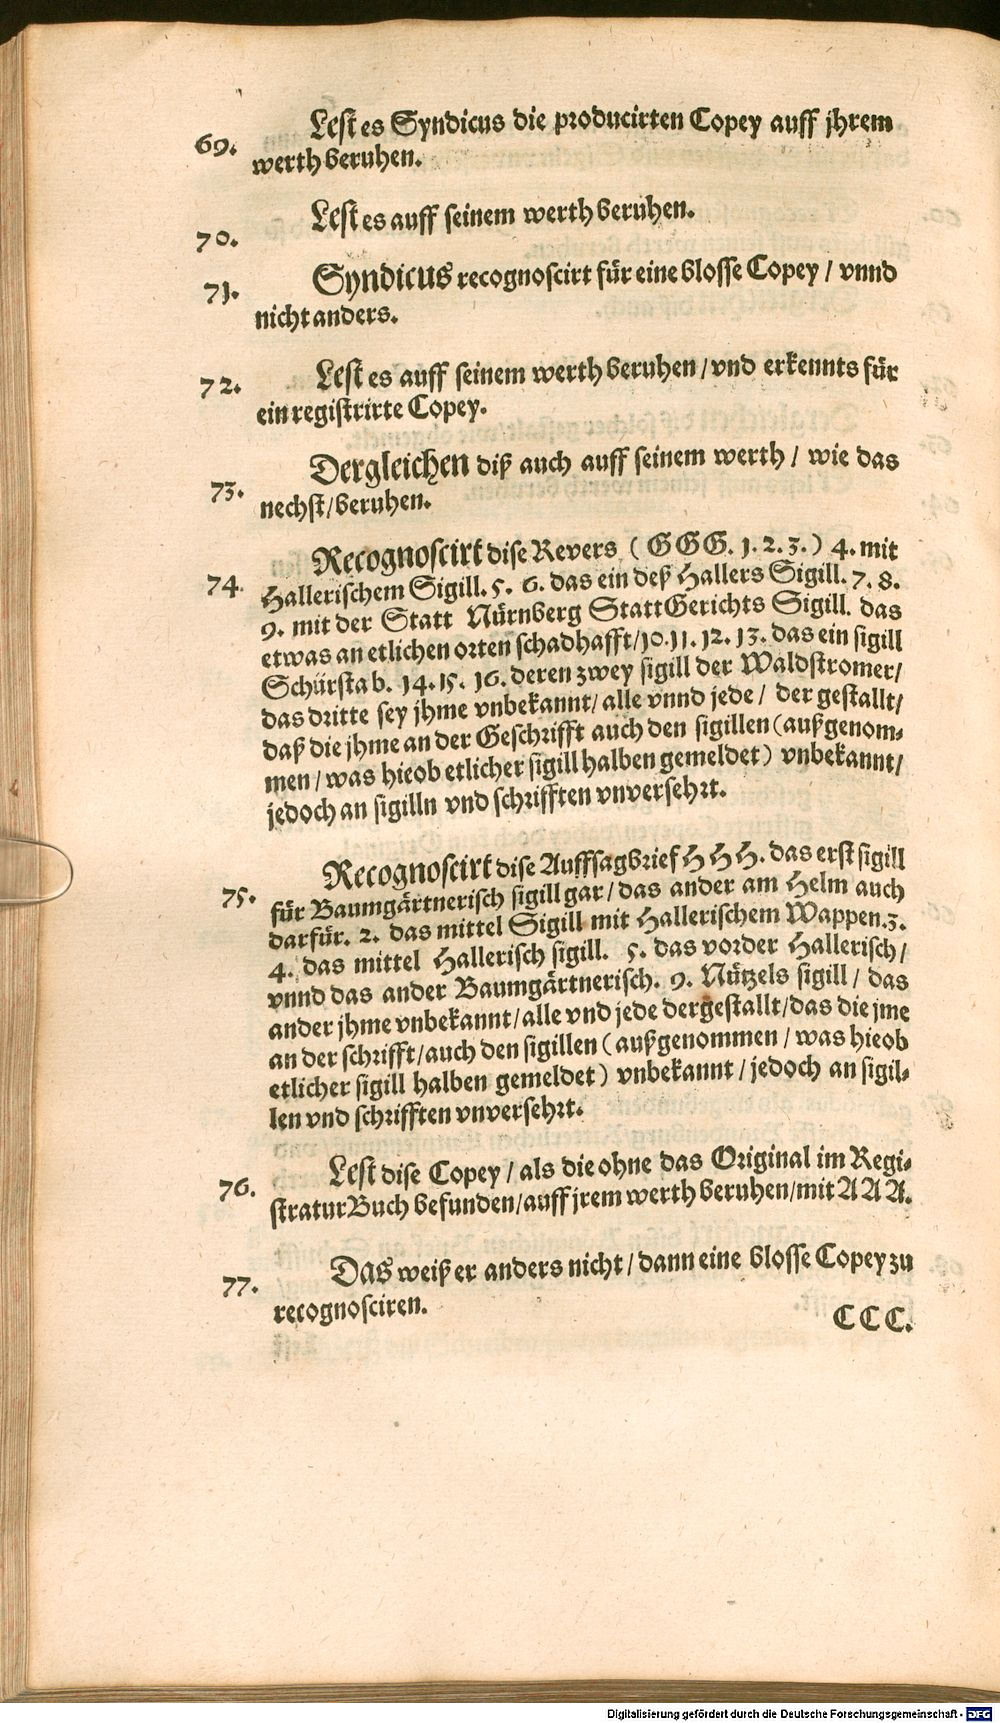 69. Lest es Syndicus die producirten Copey auff jhrem
werth beruhen.
70. Lest es auff seinem werth beruhen.
71. Syndicus recognoscirt für eine blosse Copey / vnnd
nicht anders.
72. Lest es auff seinem werth beruhen / vnd erkennts für
ein registrirte Copey.
73. Dergleichen diß auch auff seinem werth / wie das
nechst / beruhen.
74. Recognoscirt dise Revers (GGG. 1. 2. 3.) 4. mit
Hallerischem Sigill. 5. 6. das ein deß Hallers Sigill. 7. 8.
9. mit der Statt Nürnberg StattGerichts Sigill. das
etwas an etlichen orten schadhafft / 10. 11. 12. 13. das ein sigill
Schürstab. 14. 15. 16. deren zwey sigill der Waldstromer /
das dritte sey jhme vnbekannt / alle vnnd jede / der gestallt /
daß die jhme an der Geschrifft auch den sigillen (außgenom-
men / was hieob etlicher sigill halben gemeldet) vnbekannt /
jedoch an sigilln vnd schrifften vnversehrt.
75. Recognoscirt dise Auffsagbrief HHH. das erst sigill
für Baumgärtnerisch sigill gar / das ander am Helm auch
darfür. 2. das mittel Sigill mit Hallerischem Wappen. 3.
4. das mittel Hallerisch sigill. 5. das vorder Hallerisch /
vnnd das ander Baumgärtnerisch. 9. Nützels sigill / das
ander jhme vnbekannt / alle vnd jede dergestallt / das die jme
an der schrifft / auch den sigillen (außgenommen / was hieob
etlicher sigill halben gemeldet) vnbekannt / jedoch an sigil-
len vnd schrifften vnversehrt.
76. Lest dise Copey / als die ohne das Original im Regi-
straturBuch befunden / auff jrem werth beruhen / mit AAA.
77. Das weiß er anders nicht / dann eine blosse Copey zu
recognosciren.
CCC.
Digitalisierung gefördert durch die Deutsche Forschungsgemeinschaft - DFG